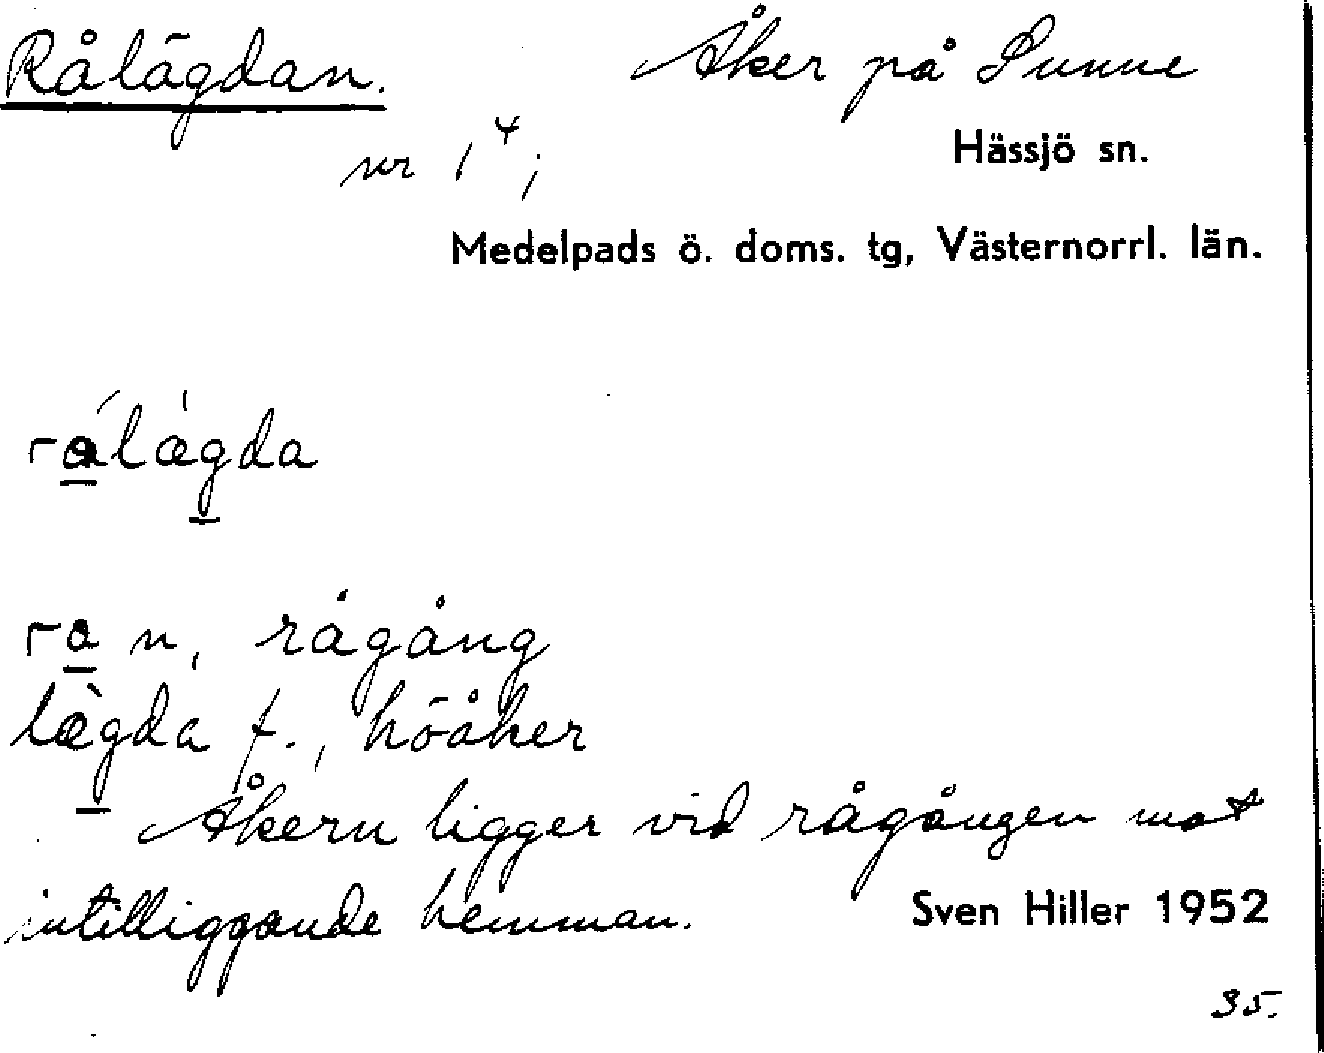 Rålägdan. Åker på Sunne
nr 1⁴; Hässjö sn.
Medelpads ö. doms. tg, Västernorrl. län.
rá̱læ̀g̱da
ra̱ n, rågång
læ̀g̱da f., höåker
Åkern ligger vid rågången mot
intilliggande hemman. Sven Hiller 1952
35.